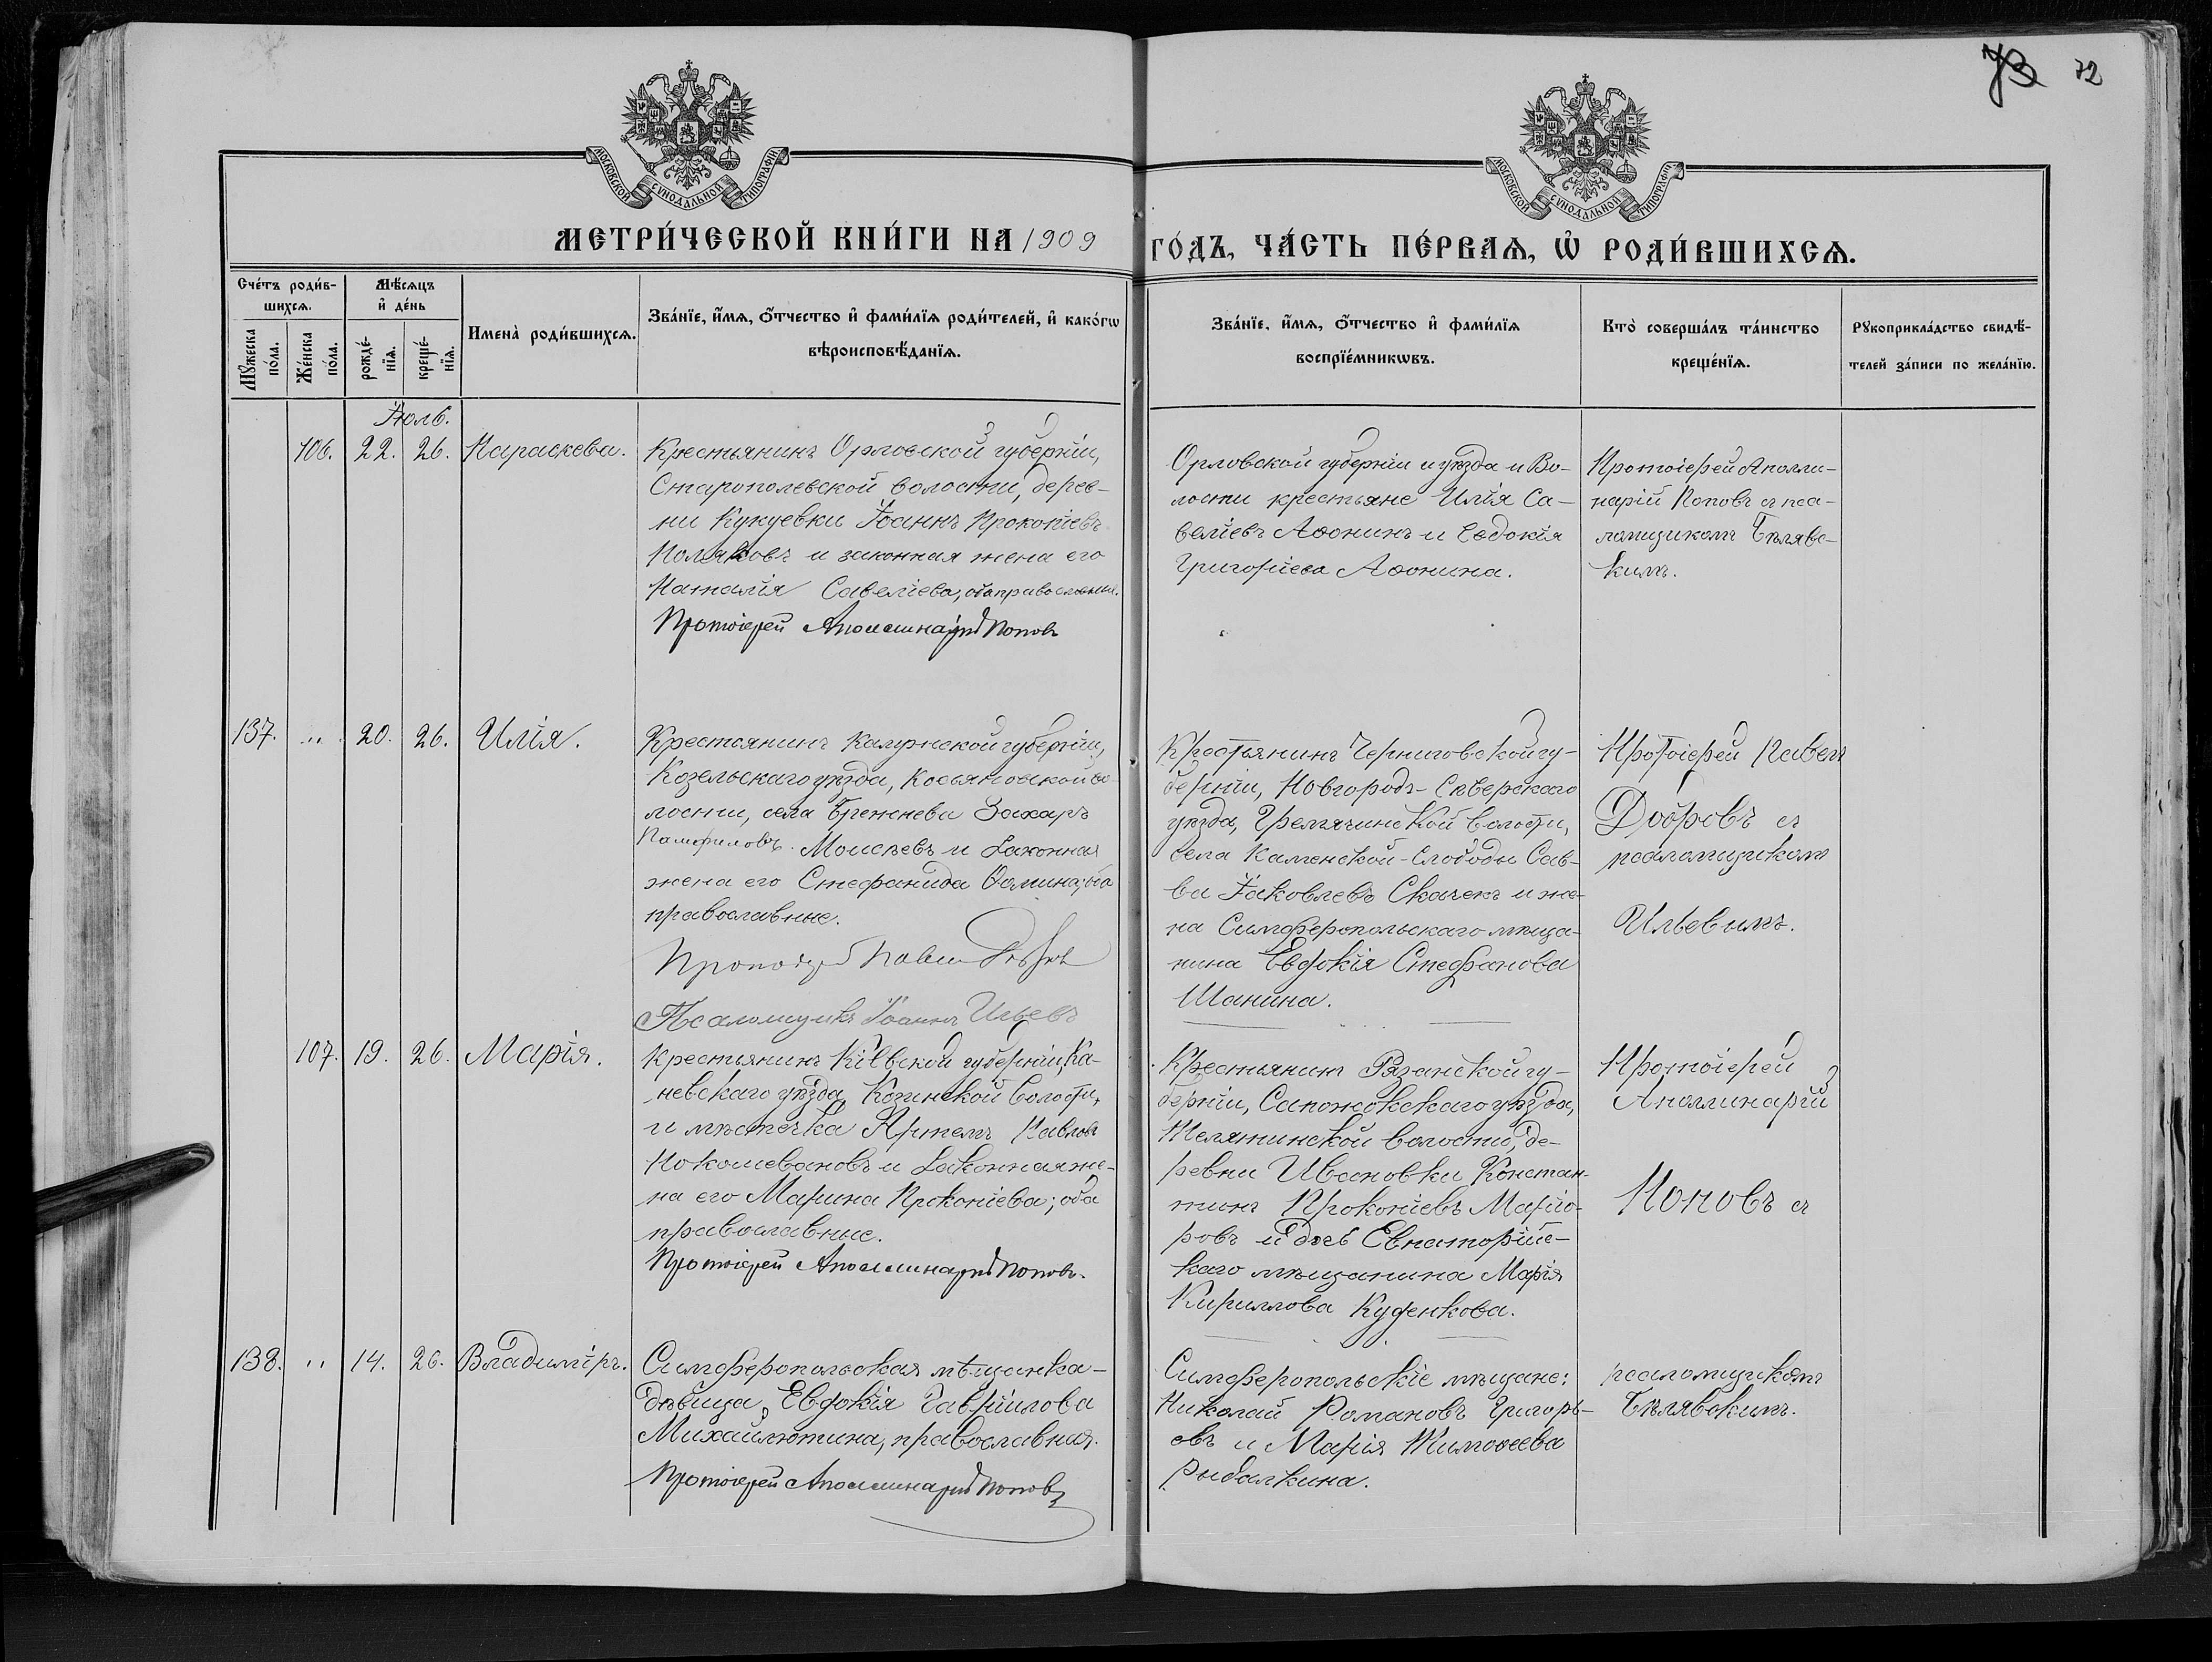 73 72
МОСКОВСКОЙ СѴНОДАЛЬНОЙ ТИПОГРАФІИ.
МОСКОВСКОЙ СѴНОДАЛЬНОЙ ТИПОГРАФІИ.
МЕТРИ́ЧЕСКОЙ КНИ́ГИ НА 1909
ГО́ДЪ, ЧА́СТЬ ПЕ́РВАѦ, Ѡ҆ РОДИ́ВШИХСѦ.
Сче́тъ роди́в-
шихсѧ.
Мꙋ́жеска по́ла.
Же́нска по́ла.
Мѣ́сѧцъ
и҆ де́нь
рожде́-
нїѧ.
креще́-
нїѧ.
Имена̀ роди́вшихсѧ.
Зва́нїе, и҆́мѧ, ѻ҆́тчество и҆ фами́лїѧ роди́телей, и҆ како́гѡ
вѣроисповѣ́данїѧ.
Зва́нїе, и҆́мѧ, ѻ҆́тчество и҆ фами́лїѧ
воспрїе́мникѡвъ.
Кто̀ соверша́лъ та́инство
креще́нїѧ.
Рꙋкоприкла́дство свидѣ́-
телей за́писи по жела́нїю.
Іюль.
106. 22. 26. Параскева.
Крестьянинъ Орловской губерніи,
Старополевской волости, дерев-
ни Кукуевки Іоаннъ Прокопіевъ
Поляковъ и законная жена его
Наталія Савеліева, оба православные.
Протоіерей Аполлинарій Поповъ
Орловской губерніи и уѣзда и Во-
лости крестьяне Илія Са-
веліевъ Аѳонинъ и Евдокія
Григоріева Аѳонина.
Протоіерей Аполли-
нарій Поповъ съ пса-
ломщикомъ Бѣлявс-
кимъ.
137. " 20. 26. Илія.
Крестьянинъ Калужской губерніи,
Козельскаго уѣзда, Косьяновской во-
лости, села Бренева Захаръ
Памфиловъ Моисѣевъ и Законная
жена его Стефанида Ѳомина; оба
православные.
Протоіерей Павелъ Добровъ
Псаломщикъ Іоаннъ Ильевъ
Крестьянинъ Черниговской гу-
берніи, Новгородъ-Сѣверскаго
уѣзда, Гремячинской волости,
села Каменской-Слободы Сав-
ва Іаковлевъ Скачекъ и же-
на Симферопольскаго мѣща-
нина Евдокія Стефанова
Шанина.
Протоіерей Павелъ
Добровъ съ
псаломщикомъ
Ильевымъ.
107. 19. 26. Марія.
Крестьянинъ Кіевской губерніи, Ка-
невскаго уѣзда, Козинской Волости,
и мѣстечка Артемъ Павловъ
Ноколевановъ и Законная же-
на его Марина Прокопіева; оба
православные.
Протоіерей Аполлинарій Поповъ.
Крестьянинъ Рязанской гу-
берніи, Сапожокскаго уѣзда,
Желятинской волости, де-
ревни Ивановки Констан-
тинъ Прокопіевъ Маріо-
ровъ и дочь Евпаторійс-
каго мѣщанина Марія
Кириллова Куденкова.
Протоіерей
Аполлинарій
Поповъ съ
138. " 14. 26. Владиміръ.
Симферопольская мѣщанка-
дѣвица, Евдокія Гавріилова
Михайлютина, православная.
Протоіерей Аполлинарій Поповъ
Симферопольскіе мѣщане:
Николай Романовъ Григорь-
евъ и Марія Тимоѳеева
Рыбалкина.
псаломщикомъ
Бѣлявскимъ.